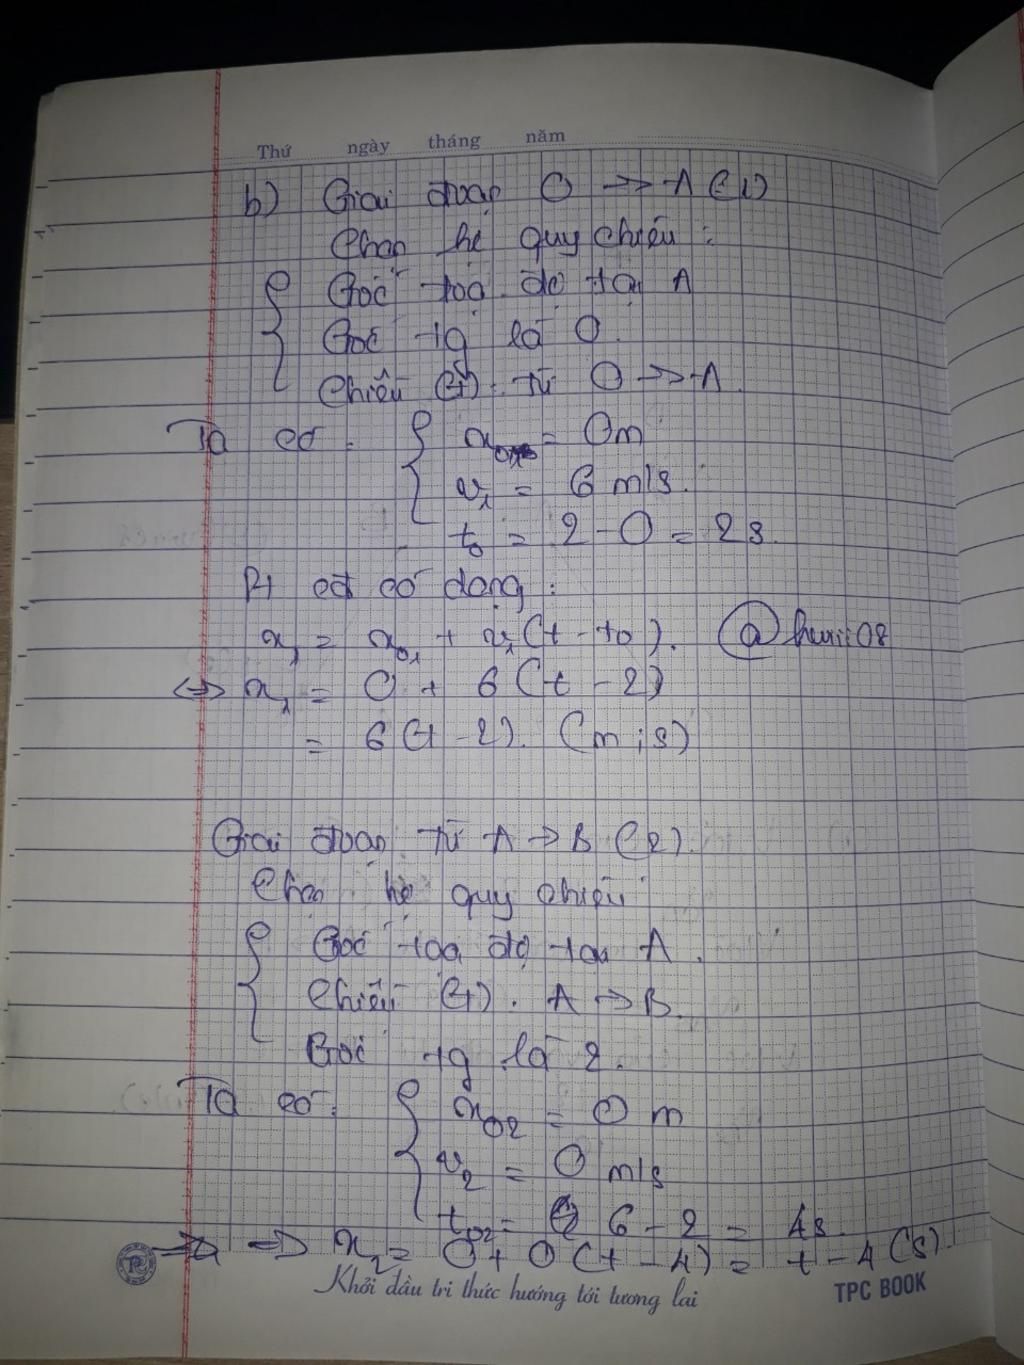 Thứ ngày tháng năm
b) Giai đoạn O → A (1)
Chọn hệ quy chiếu :
Gốc toạ độ tại A
Gốc tg là O.
Chiều (+) : từ O → A.
Ta có : x₀₁ = 0m
v₁ = 6 m/s.
t₀ = 2 - 0 = 2s.
Pt cđ có dạng :
x₁ = x₀₁ + v₁(t - t₀). @huii08
<=> x₁ = 0 + 6(t - 2)
= 6(t - 2). (m ; s)
Giai đoạn từ A → B (2).
Chọn hệ quy chiếu
Gốc toạ độ tại A.
Chiều (+). A → B.
Gốc tg là 2.
Ta có : x₀₂ = 0 m
v₂ = 0 m/s
t₀₂ = 6 - 2 = 4s.
=> x₂ = 0 + 0(t - 4) = t - 4 (s).
Khởi đầu tri thức hướng tới tương lai
TPC BOOK